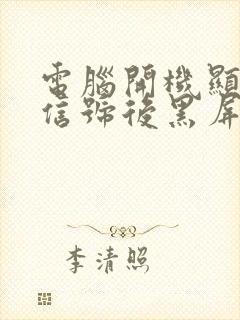 電腦開機顯
信號後黑屏
李清照